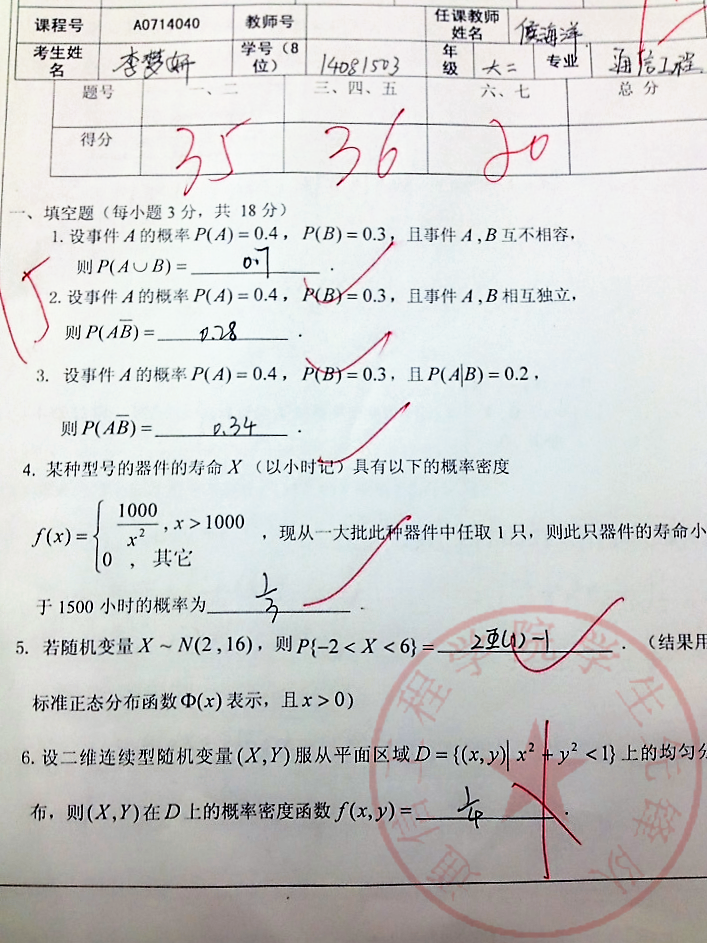 课程号 A0714040 教师号 任课教师姓名 侯海洋
考生姓名 李梦妍 学号(8位) 14081503 年级 大二 专业 通信工程
题号 一、二 三、四、五 六、七 总分
得分 35 36 20
一、填空题(每小题3分,共 18分)
15
1. 设事件 A 的概率 P(A) = 0.4, P(B) = 0.3, 且事件 A, B 互不相容,
则 P(A∪B) = 0.7 .
2. 设事件 A 的概率 P(A) = 0.4, P(B) = 0.3, 且事件 A, B 相互独立,
则 P(AB̅) = 0.28 .
3. 设事件 A 的概率 P(A) = 0.4, P(B) = 0.3, 且 P(A|B) = 0.2,
则 P(AB̅) = 0.34 .
4. 某种型号的器件的寿命 X (以小时记)具有以下的概率密度
f(x) = { 1000/x², x > 1000
0 , 其它 ,现从一大批此种器件中任取 1 只,则此只器件的寿命小
于 1500 小时的概率为 1/3 .
5. 若随机变量 X ~ N(2,16), 则 P{-2 < X < 6} = 2Φ(1)-1 . (结果用
标准正态分布函数 Φ(x) 表示,且 x > 0)
6. 设二维连续型随机变量 (X,Y) 服从平面区域 D = {(x,y)| x² + y² < 1} 上的均匀分
布,则 (X,Y) 在 D 上的概率密度函数 f(x,y) = 1/4 .
通信工程学院学生先锋队